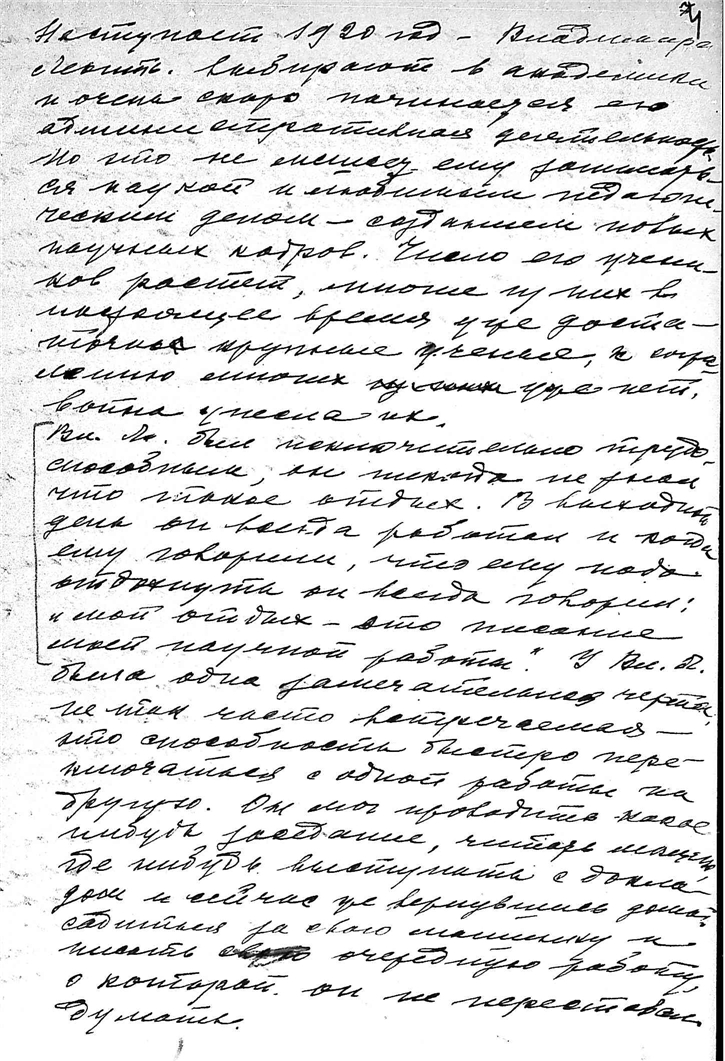 71
Наступает 1920 год – Владимира
Леонт. выбирают в академики
и очень скоро начинается его
административная деятельность.
Но это не мешает ему занимать-
ся наукой и любимым педагоги-
ческим делом – созданием новых
научных кадров. Число его учени-
ков растет, многие из них в
настоящее время уже доста-
точно крупные ученые, к сожа-
лению многих уже нет,
война унесла их.
Вл. Л. был исключительно трудо-
способным, он никогда не знал
что такое отдых. В выходной
день он всегда работал и когда
ему говорили, что ему надо
отдохнуть он всегда говорил:
"мой отдых – это писание
моей научной работы". У Вл. Л.
была одна замечательная черта,
не так часто встречаемая –
это способность быстро пере-
ключаться с одной работы на
другую. Он мог проводить какое
нибудь заседание, читать лекцию,
где нибудь выступать с докла-
дом и сейчас же вернувшись домой
садиться за свою машинку и
писать очередную работу,
о которой он не переставал
думать.